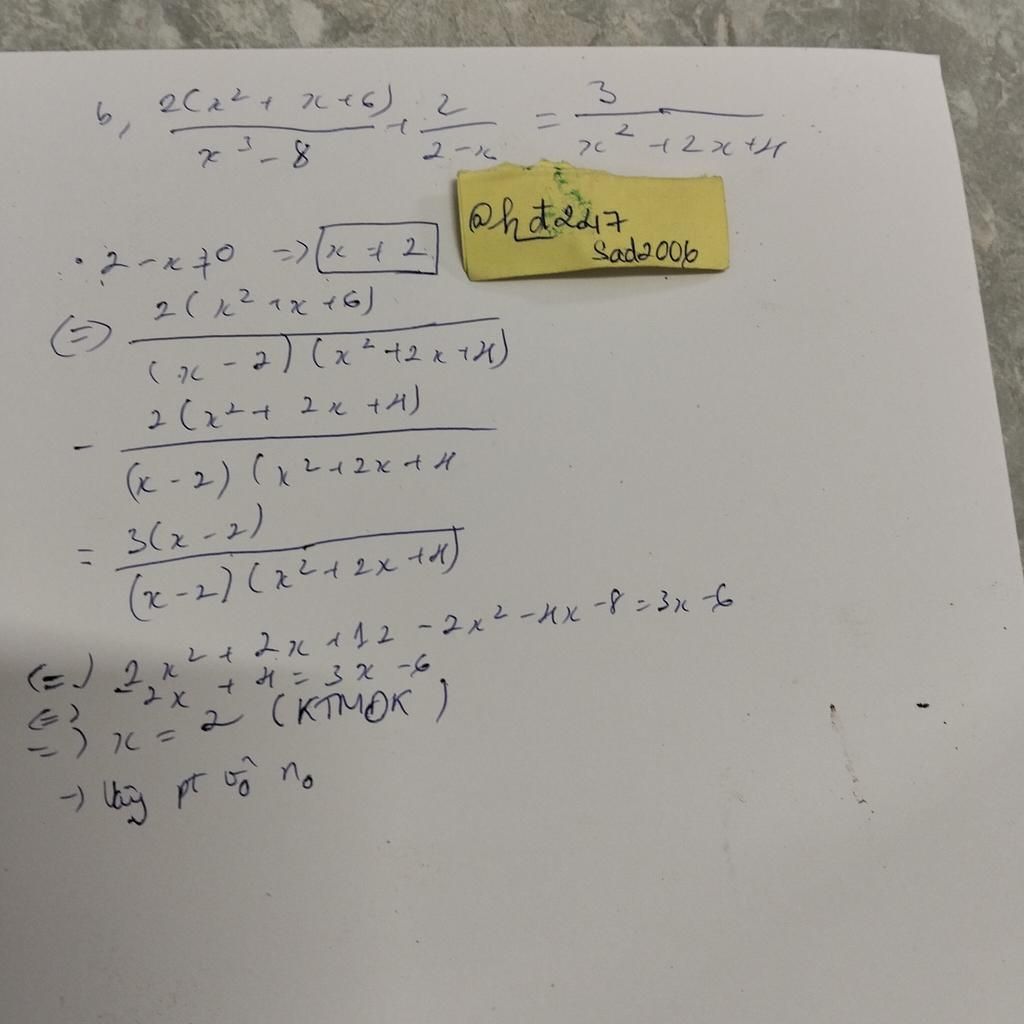 b, 2(x² + x + 6) / x³ - 8 + 2 / 2 - x = 3 / x² + 2x + 4
@hdt2217
Sad2006
• 2 - x ≠ 0 => x ≠ 2
(=) 2(x² + x + 6) / (x - 2)(x² + 2x + 4)
- 2(x² + 2x + 4) / (x - 2)(x² + 2x + 4
= 3(x - 2) / (x - 2)(x² + 2x + 4)
(=) 2x² + 2x + 12 - 2x² - 4x - 8 = 3x - 6
(=) -2x + 4 = 3x - 6
=) x = 2 (KTMĐK)
-) Vậy pt vô n₀